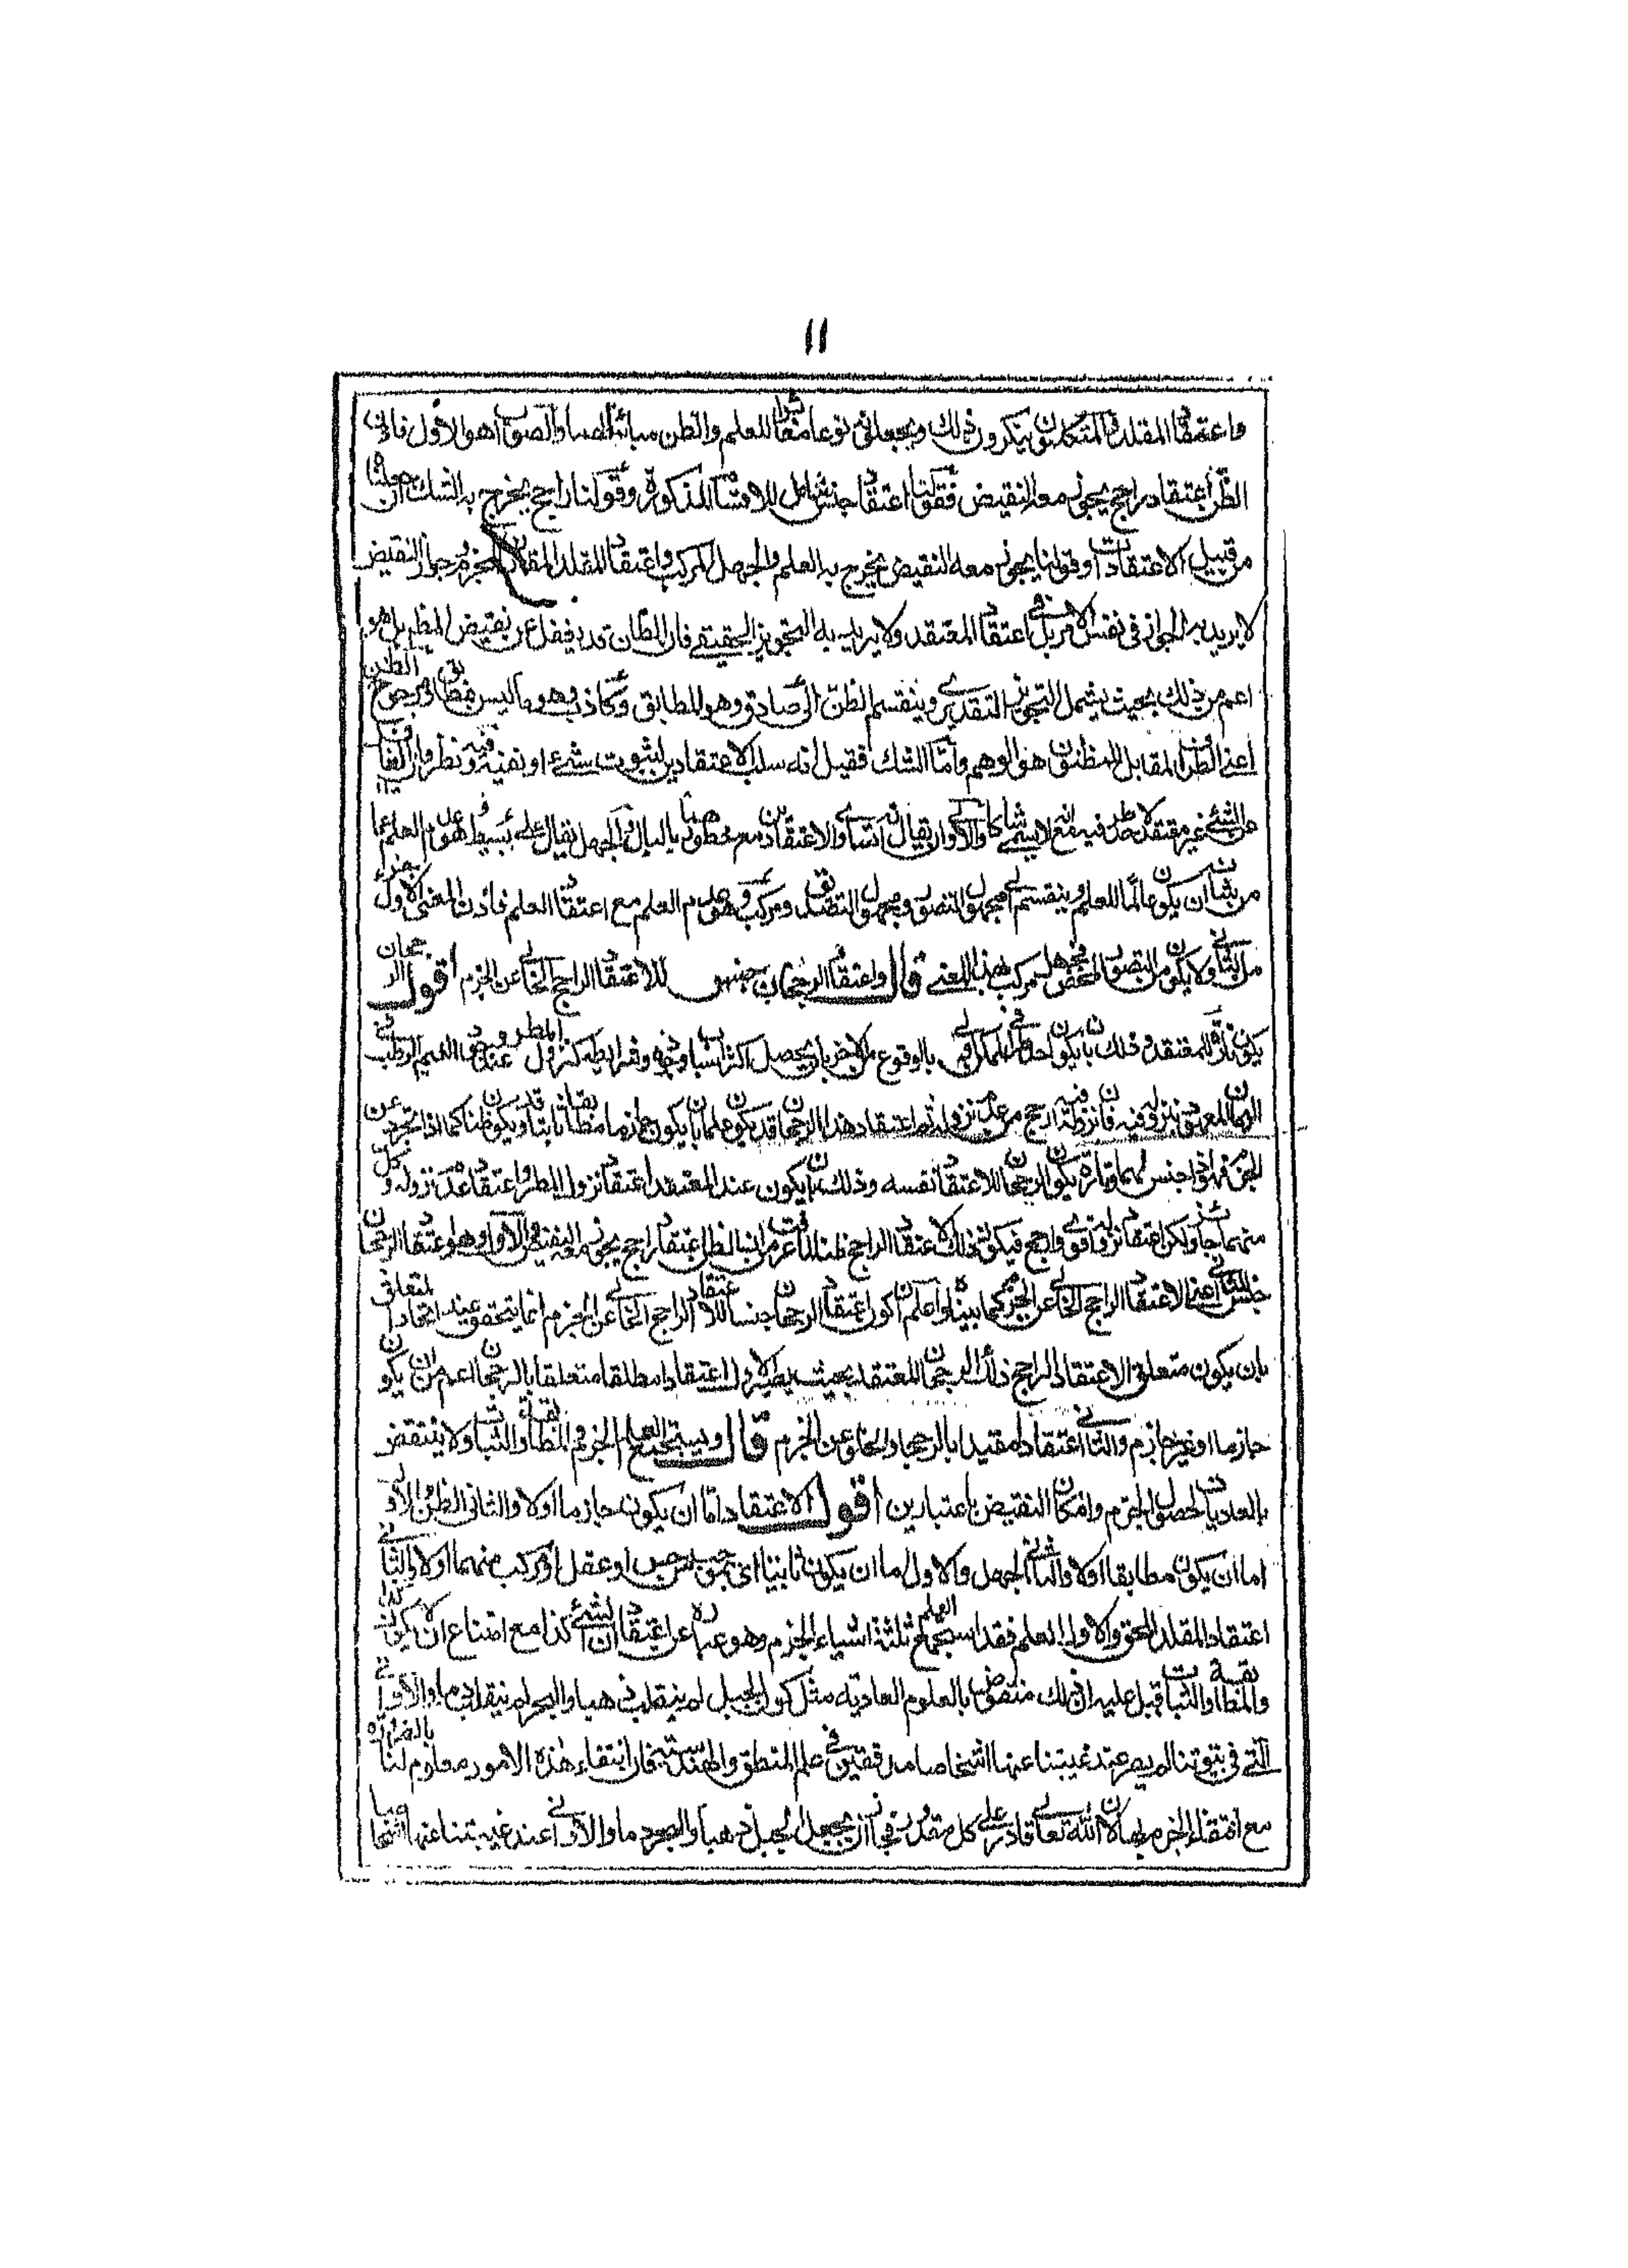 ١١
واعتقاد المقلد والمتكلمون ينكرون ذلك ويجعلونه نوعا مغايرا للعلم والظن مباينا لهما والصواب هو الاول فاذن
الظن اعتقاد راجح يجوز معه النقيض فقولنا اعتقاد جنس شامل للاقسام المذكورة وقولنا راجح يخرج به الشك ان جعلناه
من قبيل الاعتقادات وقولنا يجوز معه النقيض يخرج به العلم والجهل المركب واعتقاد المقلد الجزم وجواز النقيض
لا يريد به الجواز في نفس الامر بل عند اعتقاد المعتقد ولا يريد به التجويز الحقيقي فان الظان قد يغفل عن نقيض المظنون بل هو
اعم من ذلك بحيث يشمل التجويز التقديري وينقسم الظن الى صادق وهو المطابق وكاذب وهو ما ليس بمطابق ومرجوح الظن
اعني الطرف المقابل للمظنون هو الوهم واما الشك فقيل انه سلب الاعتقادين بثبوت شيء او نفيه وفيه نظر فان الغافل
عن الشيء غير معتقد لاحد طرفيه مع انه لا يسمى شاكا والاولى ان يقال انه تساوي الاعتقادين مع خطورهما بالبال والجهل يقال على بسيط وهو عدم العلم عما
من شانه ان يكون عالما للعلم وينقسم الى جهل التصور وجهل التصديق ومركب وهو عدم العلم مع اعتقاد العلم فاذن المعنى الاول جزء
من الثاني ولا يكون من التصور المحض جهل مركب بهذا المعنى قال واعتقاد الرجحان جنس للاعتقاد الراجح الخالي عن الجزم اقول الرجحان
يكون تارة للمعتقد وذلك بان يكون احد طرفي الممكن اولى بالوقوع من الاخر بان يحصل اكثر اسباب وجوده وشرايطه كنزول المطر عند وجود الغيم الرطب في
الزمان المعهود نزوله فيه فان نزوله فيه ارجح من عدم نزوله ثم اعتقاد هذا الرجحان قد يكون علما بان يكون جازما مطابقا ثابتا وقد يكون ظنا كما اذا تجرد عن
الجزم فهو اذن جنس لهما وتارة يكون الرجحان للاعتقاد نفسه وذلك بان يكون عند المعتقد اعتقاد نزول المطر واعتقاد عدم نزوله وكل
منهما جائز ولكن اعتقاد نزوله اقوى وارجح فيكون ذلك الاعتقاد الراجح ظنا لما عرفت من ان الظن اعتقاد راجح يجوز معه النقيض والاول وهو اعتقاد الرجحان
جنس للثاني اعني الاعتقاد الراجح الخالي عن الجزم كما بيناه واعلم ان كون اعتقاد الرجحان جنسا للاعتقاد الراجح الخالي عن الجزم انما يتحقق عند اتحاد المتعلق
بان يكون متعلق الاعتقاد الراجح ذلك الرجحان للمعتقد بحيث يصير الاول اعتقادا مطلقا متعلقا بالرجحان اعم من ان يكون
جازما او غير جازم والثاني اعتقادا مقيدا بالرجحان والخلو عن الجزم قال ويستجمع العلم الجزم والمطابقة والثبات ولا ينتقض
بالعاديات لحصول الجزم وامكان النقيض باعتبارين اقول الاعتقاد اما ان يكون جازما اولا والثاني الظن والاول
اما ان يكون مطابقا اولا والثاني الجهل والاول اما ان يكون ثابتا اي بموجب من حس او عقل او مركب منهما اولا والثاني
اعتقاد المقلد الحق والاول العلم فقد استجمع العلم ثلثة اشياء الجزم وهو عبارة عن اعتقاد ان الشيء كذا مع امتناع ان لا يكون كذا
والمطابقة والثبات قيل عليه ان ذلك منتقض بالعلوم العادية مثل كون الجبل لم ينقلب ذهبا والبحر لم ينقلب دما والاواني
التي في بيوتنا لم يصر عند غيبتنا عنها اشخاصا مدققين في علم المنطق والهندسة فان انتفاء هذه الامور معلوم لنا بالضرورة
مع انتفاء الجزم بها لان الله تعالى قادر على كل مقدور فجاز ان يجعل الجبل ذهبا والبحر دما والاواني عند غيبتنا عنها اشخاصا